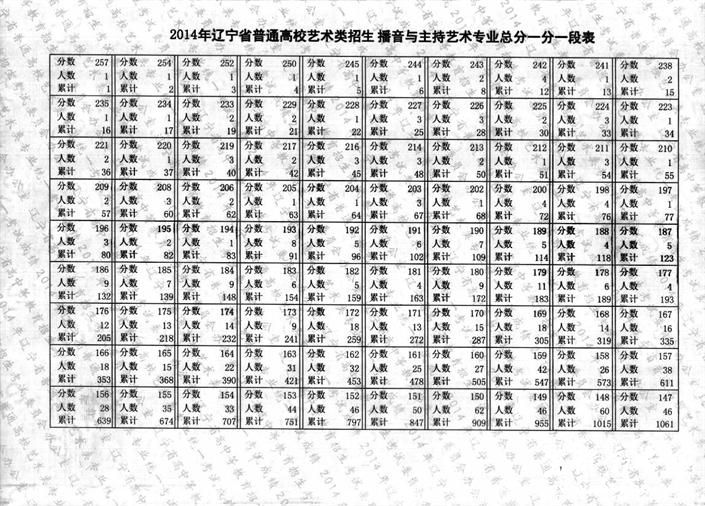 2014年辽宁省普通高校艺术类招生 播音与主持艺术专业总分一分一段表
分数 257 分数 254 分数 252 分数 250 分数 245 分数 244 分数 243 分数 242 分数 241 分数 238
人数 1 人数 1 人数 1 人数 1 人数 1 人数 1 人数 2 人数 4 人数 1 人数 2
累计 1 累计 2 累计 3 累计 4 累计 5 累计 6 累计 8 累计 12 累计 13 累计 15
分数 235 分数 234 分数 233 分数 229 分数 228 分数 227 分数 226 分数 225 分数 224 分数 223
人数 1 人数 1 人数 2 人数 2 人数 1 人数 3 人数 3 人数 2 人数 3 人数 1
累计 16 累计 17 累计 19 累计 21 累计 22 累计 25 累计 28 累计 30 累计 33 累计 34
分数 221 分数 220 分数 219 分数 217 分数 216 分数 214 分数 213 分数 212 分数 211 分数 210
人数 2 人数 1 人数 3 人数 2 人数 3 人数 3 人数 2 人数 1 人数 3 人数 1
累计 36 累计 37 累计 40 累计 42 累计 45 累计 48 累计 50 累计 51 累计 54 累计 55
分数 209 分数 208 分数 206 分数 205 分数 204 分数 203 分数 202 分数 200 分数 198 分数 197
人数 2 人数 3 人数 2 人数 1 人数 1 人数 3 人数 1 人数 4 人数 4 人数 1
累计 57 累计 60 累计 62 累计 63 累计 64 累计 67 累计 68 累计 72 累计 76 累计 77
分数 196 分数 195 分数 194 分数 193 分数 192 分数 191 分数 190 分数 189 分数 188 分数 187
人数 3 人数 2 人数 1 人数 8 人数 5 人数 6 人数 7 人数 5 人数 4 人数 5
累计 80 累计 82 累计 83 累计 91 累计 96 累计 102 累计 109 累计 114 累计 118 累计 123
分数 186 分数 185 分数 184 分数 183 分数 182 分数 181 分数 180 分数 179 分数 178 分数 177
人数 9 人数 7 人数 9 人数 6 人数 5 人数 4 人数 9 人数 11 人数 6 人数 4
累计 132 累计 139 累计 148 累计 154 累计 159 累计 163 累计 172 累计 183 累计 189 累计 193
分数 176 分数 175 分数 174 分数 173 分数 172 分数 171 分数 170 分数 169 分数 168 分数 167
人数 12 人数 13 人数 14 人数 9 人数 18 人数 13 人数 15 人数 18 人数 14 人数 16
累计 205 累计 218 累计 232 累计 241 累计 259 累计 272 累计 287 累计 305 累计 319 累计 335
分数 166 分数 165 分数 164 分数 163 分数 162 分数 161 分数 160 分数 159 分数 158 分数 157
人数 18 人数 15 人数 22 人数 31 人数 32 人数 25 人数 27 人数 42 人数 26 人数 38
累计 353 累计 368 累计 390 累计 421 累计 453 累计 478 累计 505 累计 547 累计 573 累计 611
分数 156 分数 155 分数 154 分数 153 分数 152 分数 151 分数 150 分数 149 分数 148 分数 147
人数 28 人数 35 人数 33 人数 44 人数 46 人数 50 人数 62 人数 46 人数 60 人数 46
累计 639 累计 674 累计 707 累计 751 累计 797 累计 847 累计 909 累计 955 累计 1015 累计 1061